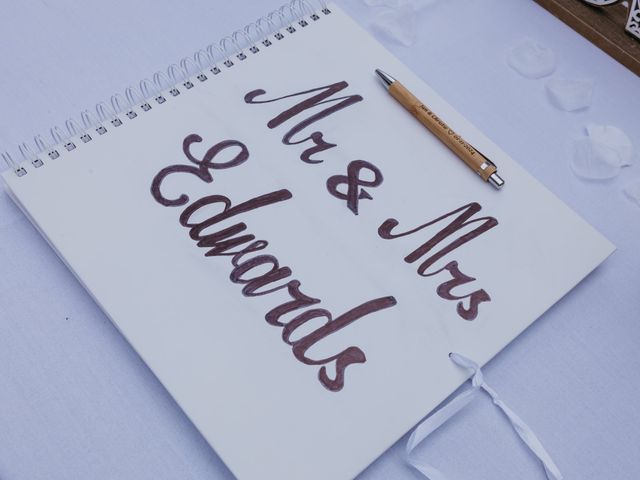 Mr & Mrs
Edwards